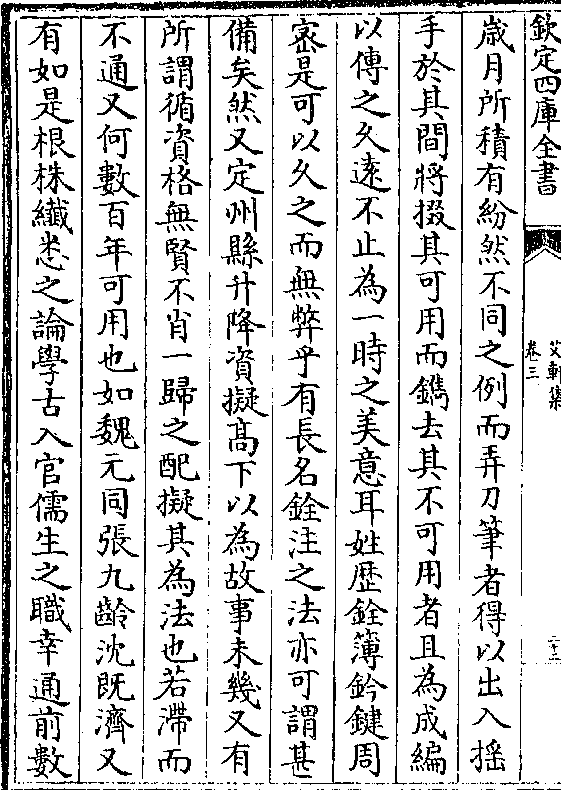 欽定四庫全書
艾軒集
卷三
二十三
歳月所積有紛然不同之例而弄刀筆者得以出入揺
手於其間將掇其可用而鐫去其不可用者且為成編
以傳之久逺不止為一時之美意耳姓歴銓簿鈐鍵周
宻是可以久之而無弊乎有長名銓注之法亦可謂甚
備矣然又定州縣升降資擬髙下以為故事未幾又有
所謂循資格無賢不肖一歸之配擬其為法也若滯而
不通又何數百年可用也如魏元同張九齡沈既濟又
有如是根株纎悉之論學古入官儒生之職幸通前數